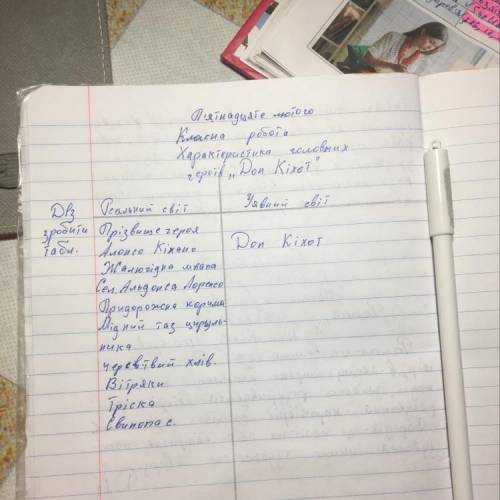 П'ятнадцяте лютого
Класна робота
Характеристика головних
героїв „Дон Кіхот"
Д/з зробити табл.
Реальний світ
Уявний світ
Прізвище героя
Алонсо Кіхано
Дон Кіхот
Жалюгідна шкапа
Сел. Альдонса Лоренсо
Придорожна корчма
Мідний таз цируль-
ника
черствий хліб.
Вітряки
Тріска
Свинопас.